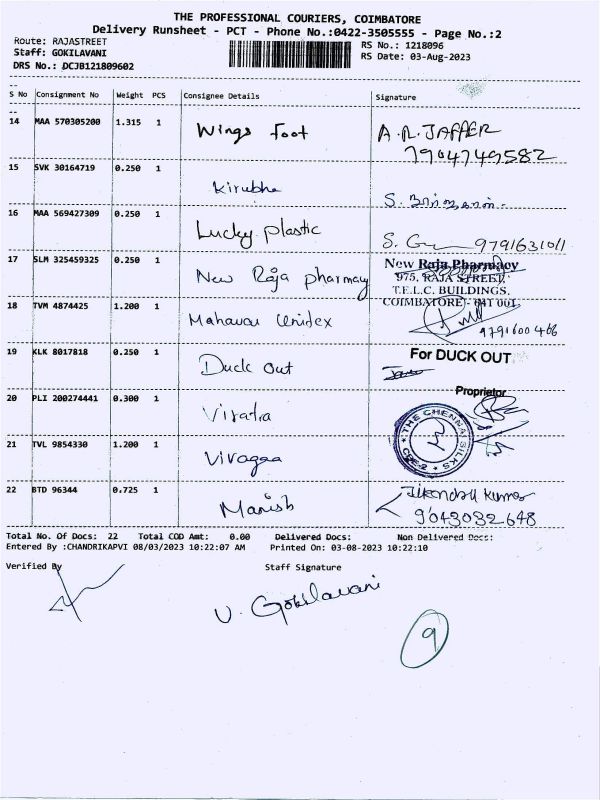 THE PROFESSIONAL COURIERS, COIMBATORE
Delivery Runsheet - PCT - Phone No.:0422-3505555 - Page No.:2
Route: RAJASTREET RS No.: 1218096
Staff: GOKILAVANI RS Date: 03-Aug-2023
DRS No.: DCJB121809602
S No Consignment No Weight PCS Consignee Details Signature
14 MAA 570305200 1.315 1 Wings foot A.R. JAFFER
7904749582
15 SVK 30164719 0.250 1 Kirubha S.
16 MAA 569427309 0.250 1 Lucky plastic S. 9791631011
17 SLM 325459325 0.250 1 New Raja pharmay New Raja Pharmacy
975, RAJA STREET,
T.E.L.C. BUILDINGS,
COIMBATORE - 641 001.
18 TVM 4874425 1.200 1 Mahavau Unidex 9791600466
19 KLK 8017818 0.250 1 Duck out For DUCK OUT
Proprietor
20 PLI 200274441 0.300 1 Viratra THE CHENNAI SILKS
CBE-2
21 TVL 9854330 1.200 1 Viragaa
22 BTD 96344 0.725 1 Manish Jitendra Kumar
9043032648
Total No. Of Docs: 22 Total COD Amt: 0.00 Delivered Docs: Non Delivered Docs:
Entered By :CHANDRIKAPVI 08/03/2023 10:22:07 AM Printed On: 03-08-2023 10:22:10
Verified By Staff Signature
V. Gokilavani
9